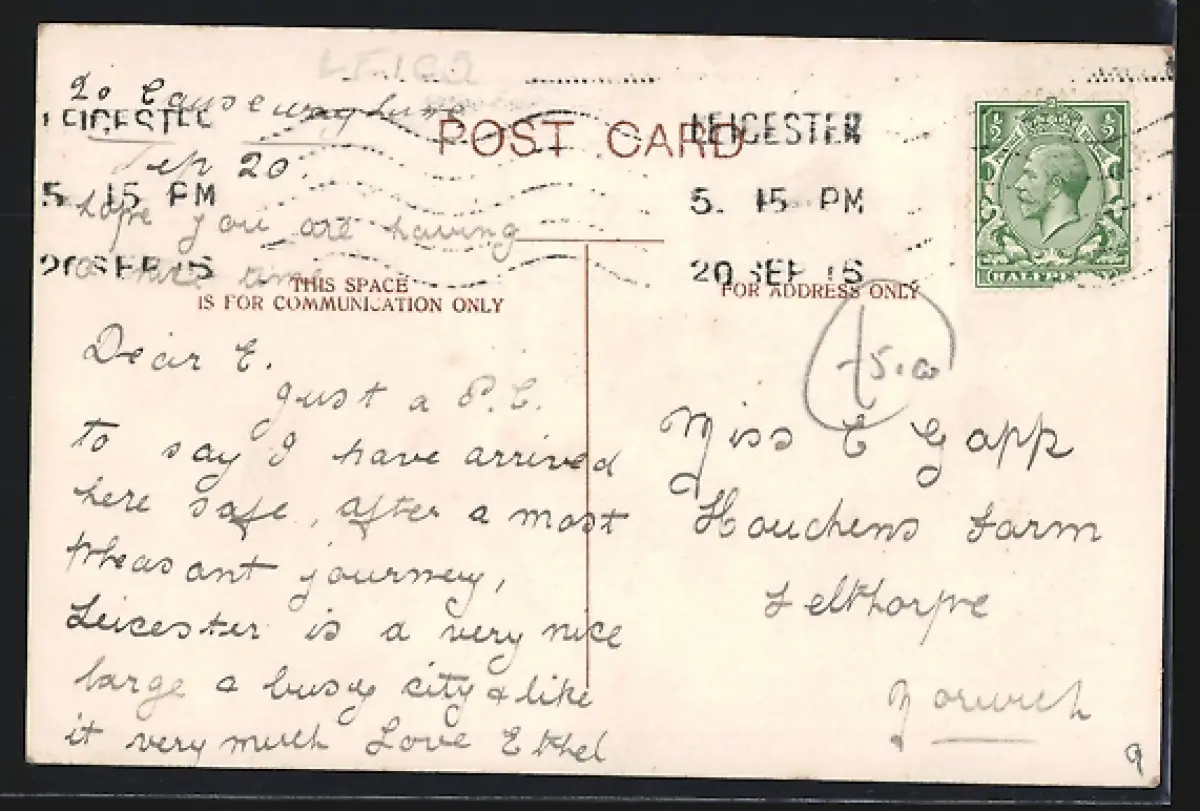 LEICS
20 Causeway Lane
Sep 20.
hope you are having
a nice time
LEICESTER
5. 15 PM
20 SEP 15
POST CARD
LEICESTER
5. 15 PM
20 SEP 15
HALFPENNY
THIS SPACE
IS FOR COMMUNICATION ONLY
FOR ADDRESS ONLY
Dear E.
Just a P.C.
to say I have arrived
here safe, after a most
pleasant journey,
Leicester is a very nice
large & busy city & like
it very much Love Ethel
Miss E Gapp
Houchens Farm
Felthorpe
Norwich
9